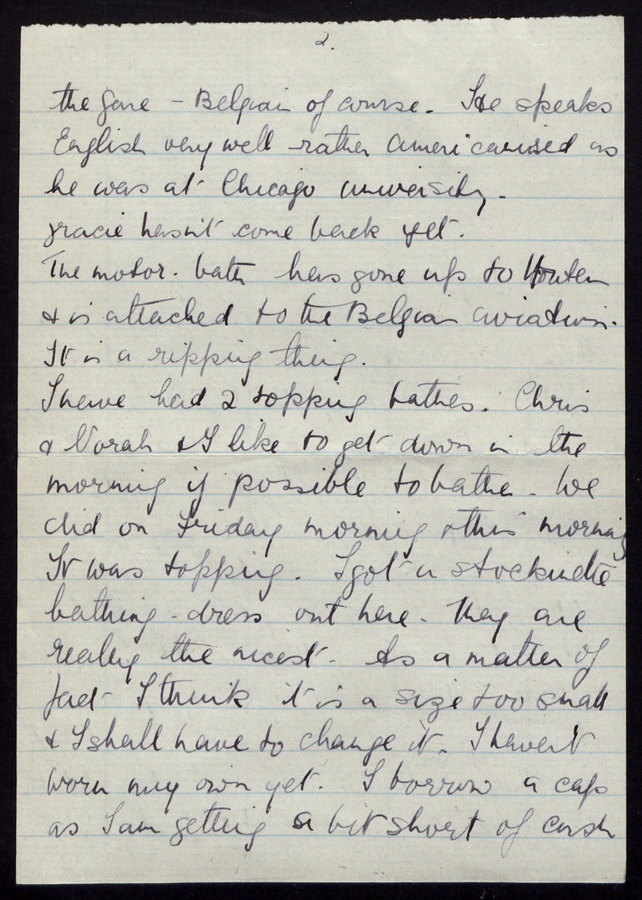 2.
the Gare - Belgian of course. He speaks
English very well rather Americanised as
he was at Chicago university.
Gracie hasn't come back yet.
The motor-bath has gone up to Houtem
& is attached to the Belgian aviation.
It is a ripping thing.
I have had 2 topping bathes. Chris
& Norah & I like to get down in the
morning if possible to bathe. We
did on Friday morning & this morning
It was topping. I got a stockinette
bathing-dress out here. They are
really the nicest. As a matter of
fact I think it is a size too small
& I shall have to change it. I haven't
worn my own yet. I borrow a cap
as I am getting a bit short of cash